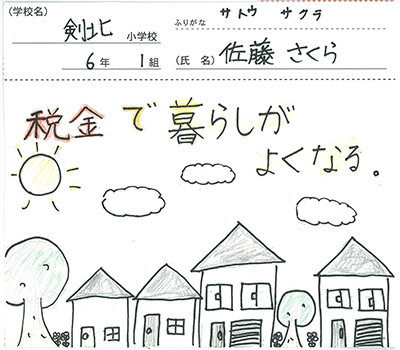 (学校名) 剣北 小学校 ふりがな サトウ サクラ
6年 1組 (氏 名) 佐藤 さくら
税金で暮らしが
よくなる。